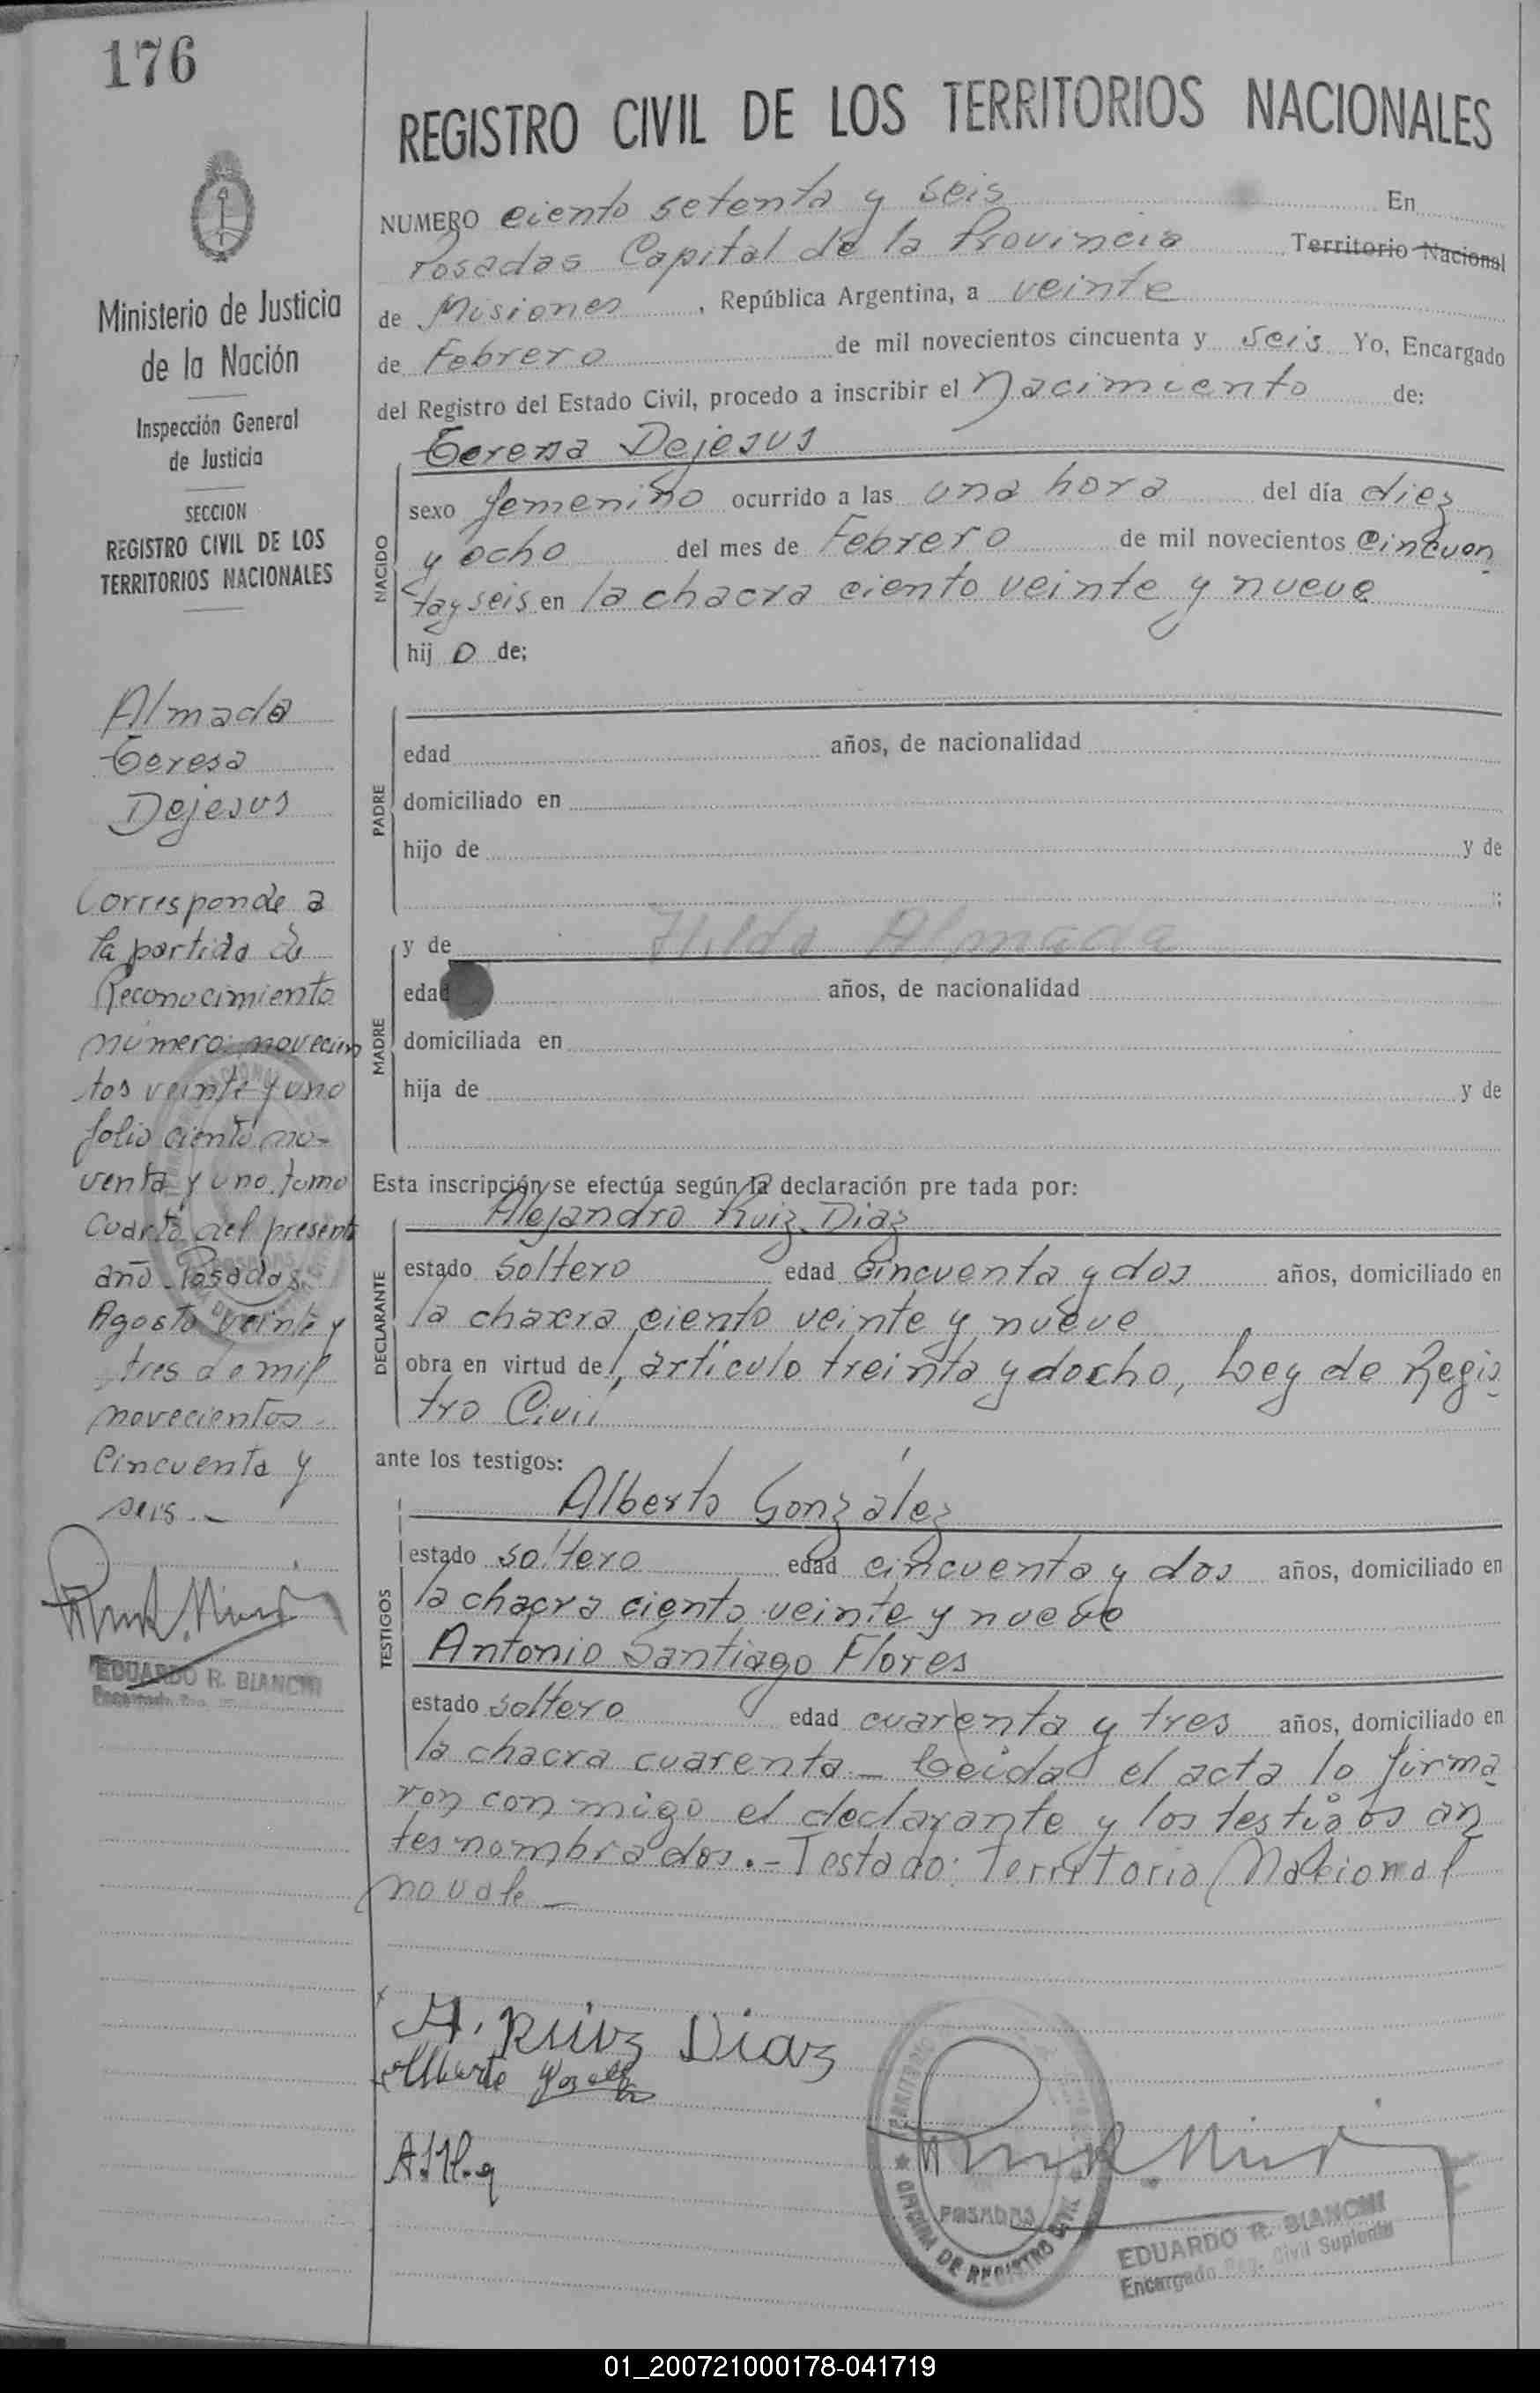 176
REGISTRO CIVIL DE LOS TERRITORIOS NACIONALES
NUMERO ciento setenta y seis En
Posadas Capital de la Provincia Territorio Nacional
de Misiones, República Argentina, a veinte
de Febrero de mil novecientos cincuenta y seis Yo, Encargado
del Registro del Estado Civil, procedo a inscribir el Nacimiento de:
Teresa Dejesus
NACIDO
sexo femenino ocurrido a las una hora del día diez
y ocho del mes de Febrero de mil novecientos Cincuen
tay seis en la chacra ciento veinte y nueve
hij o de;
PADRE
edad años, de nacionalidad
domiciliado en
hijo de y de
MADRE
y de Hilda Almada
edad años, de nacionalidad
domiciliada en
hija de y de
Esta inscripción se efectúa según la declaración pre tada por:
Alejandro Ruiz Diaz
DECLARANTE
estado Soltero edad Cincuenta y dos años, domiciliado en
la chacra ciento veinte y nueve
obra en virtud del, artículo treinta y docho, Ley de Regis
tro Civil
ante los testigos:
Alberto González
TESTIGOS
estado soltero edad cincuenta y dos años, domiciliado en
la chacra ciento veinte y nueve
Antonio Santiago Flores
estado soltero edad cuarenta y tres años, domiciliado en
la chacra cuarenta - Leida el acta lo firma
ron con migo el declarante y los testigos an
tes nombrados.- Testado: Territorio Nacional
no vale -
A. Ruiz Diaz
Alberto
POSADAS
OFICINA DE REGISTRO CIVIL
EDUARDO R. BIANCHI
Encargado Reg. Civil Suplente
Ministerio de Justicia
de la Nación
Inspección General
de Justicia
SECCION
REGISTRO CIVIL DE LOS
TERRITORIOS NACIONALES
Almada
Teresa
Dejesus
Corresponde a
la partida de
Reconocimiento
número: novecien
tos veinte y uno
folio ciento no-
venta y uno tomo
cuarto del presente
año - Posadas
Agosto veinte y
tres de mil
novecientos
cincuenta y
seis.-
EDUARDO R. BIANCHI
01_200721000178-041719